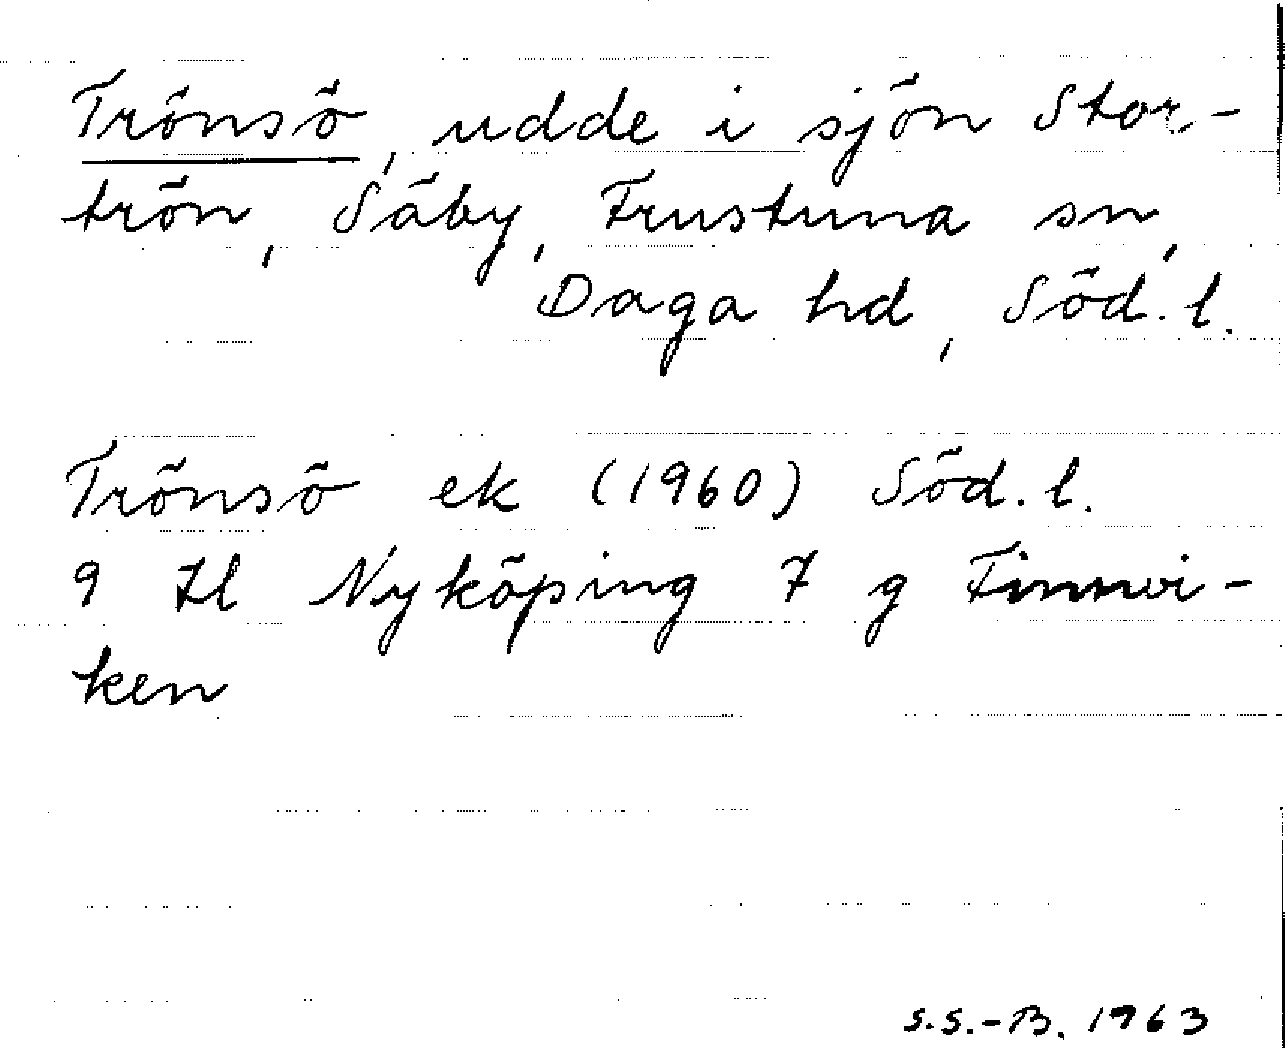 Trönsö, udde i sjön Stor-
trön, Säby, Frustuna sn,
Daga hd, Söd. l.
Trönsö ek (1960) Söd. l.
9 Il Nyköping 7 g Finnvi-
ken
S.S.-B. 1963